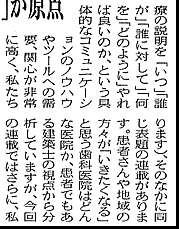 」が原点
療の説明を「いつ」「誰
が」「誰に対して」「何
を」「どのように」やれ
ば良いのか、という具
体的なコミュニケーシ
ョンのノウハウ
やツールへの需
要、関心が非常
に高く、私たち
ります。そのなかに同
じ表題の連載がありま
す。患者さんや地域の
方々が「いきたくなる」
と思う歯科医院はどん
な医院か、患者でもあ
る建築士の視点から分
析していますが、今回
の連載ではさらに、私